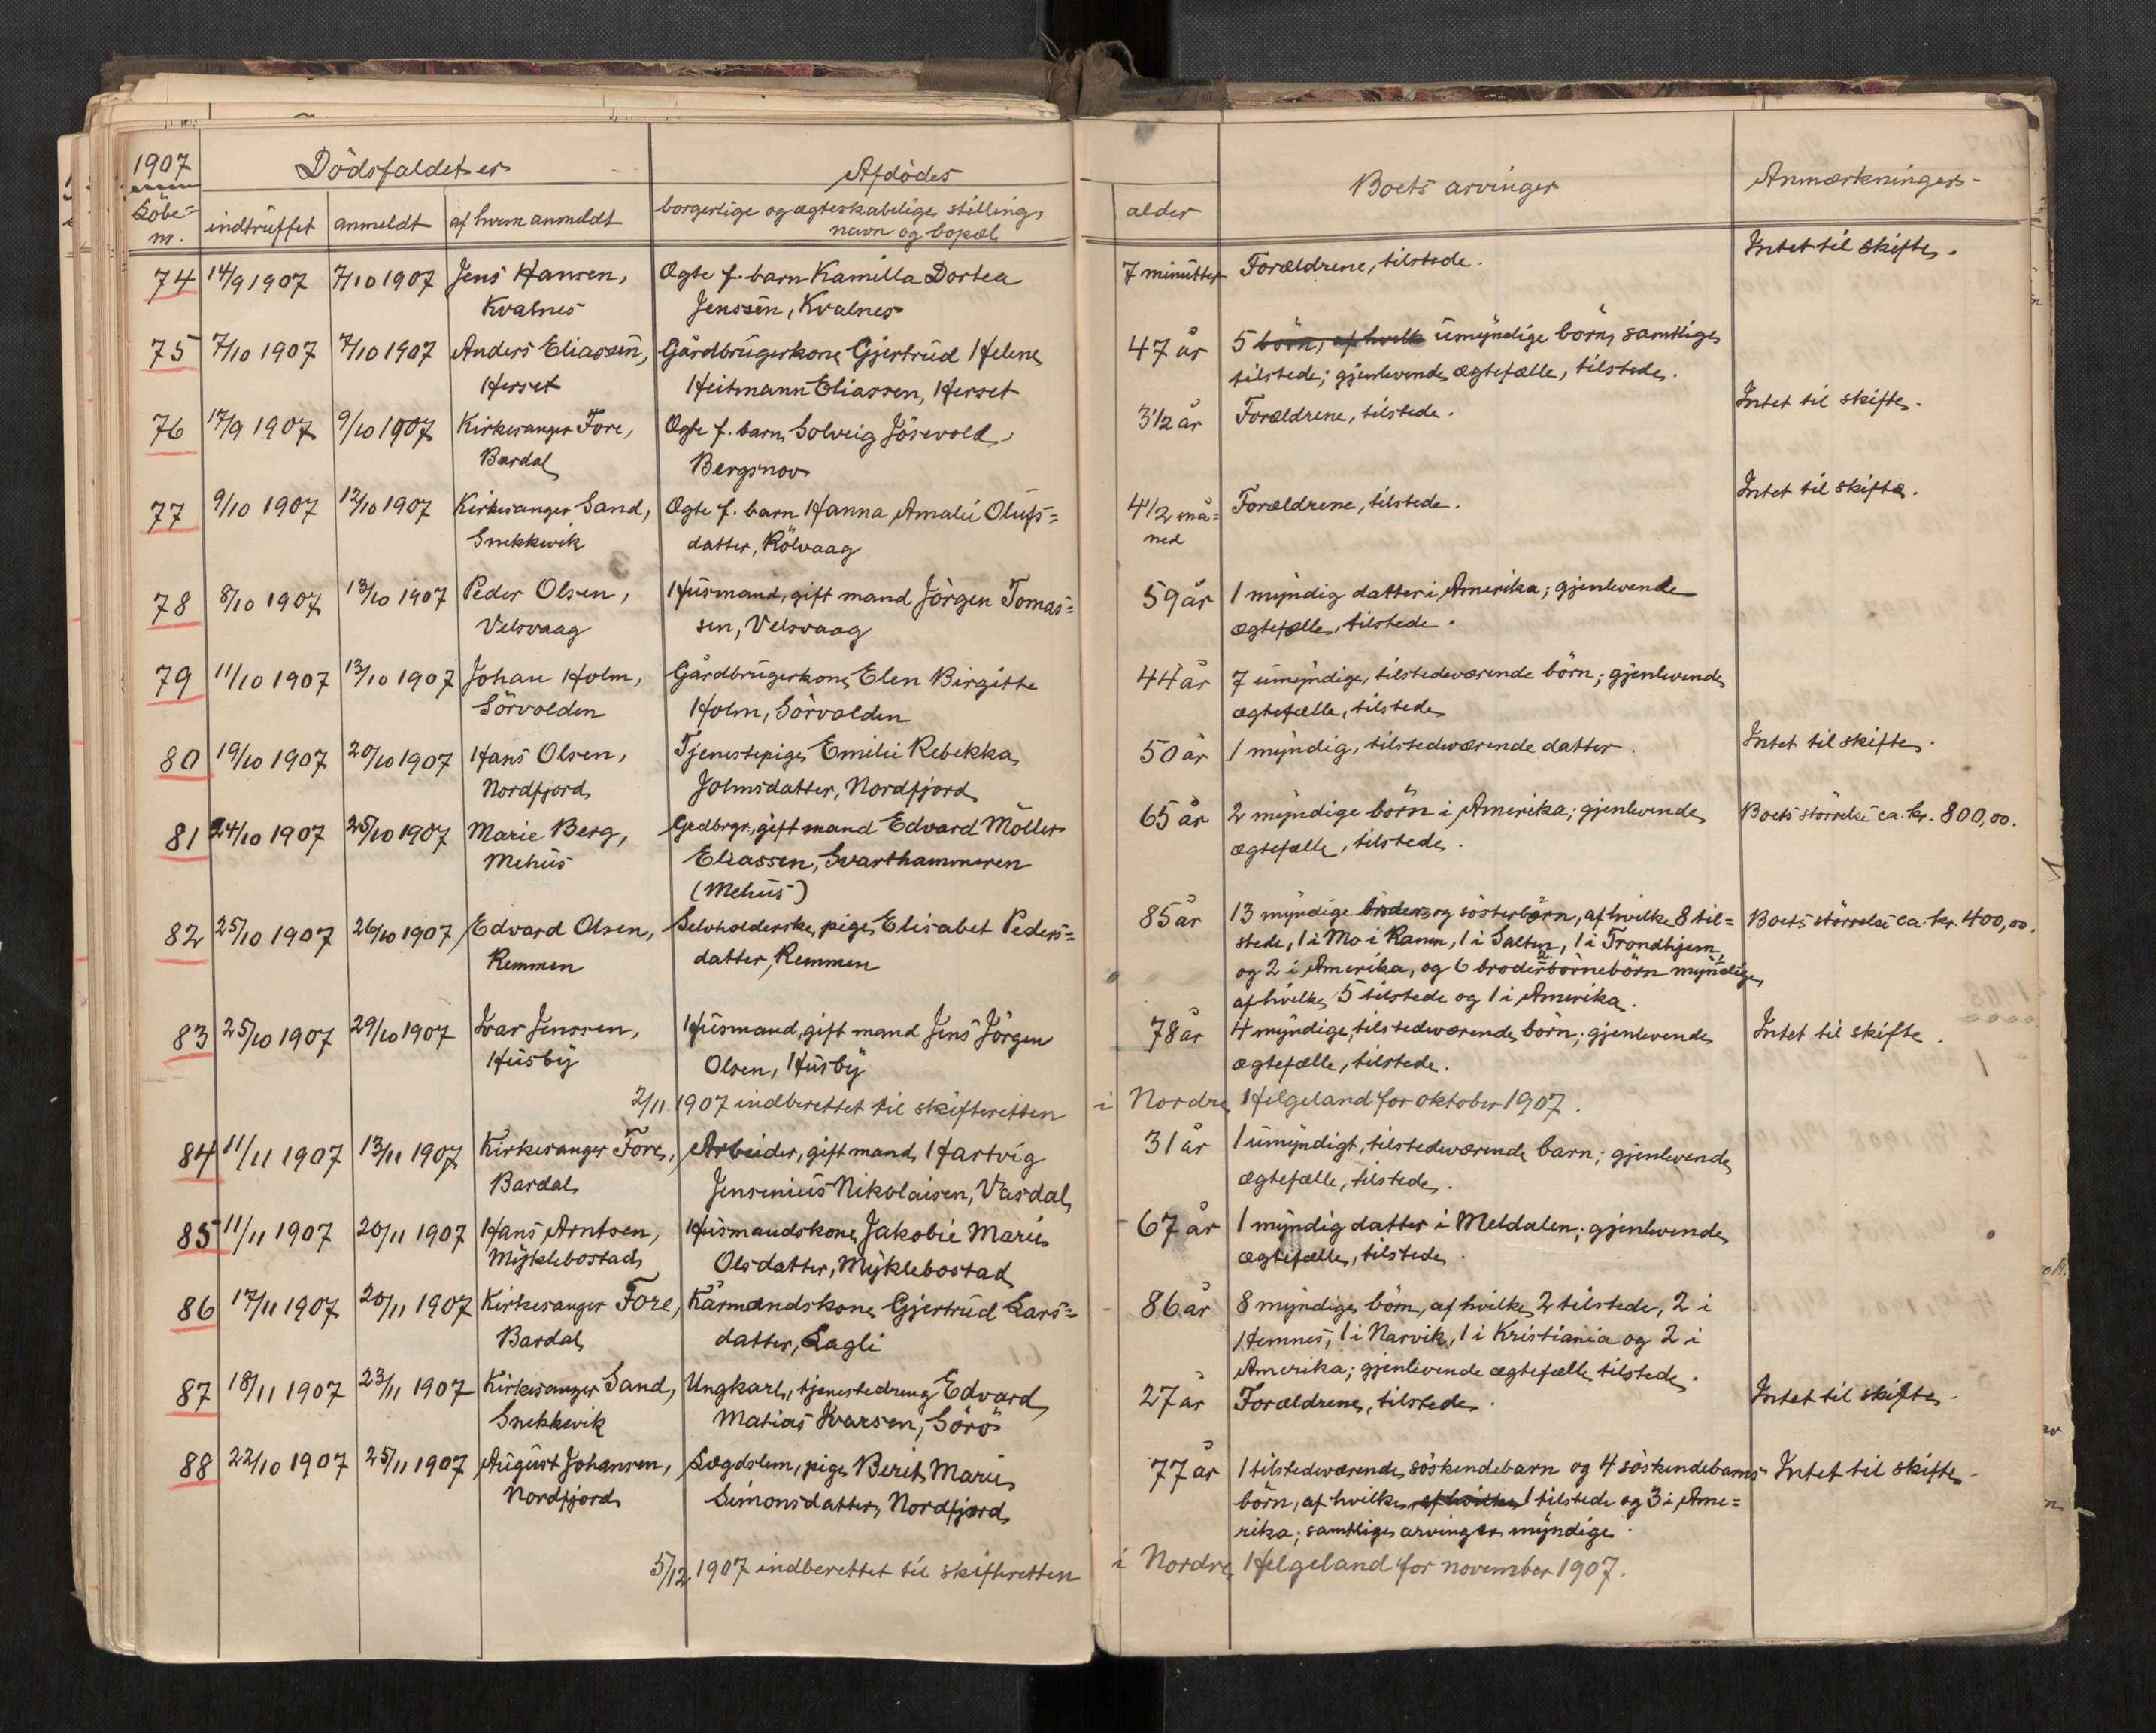 1907
Dödsfaldet er
Afdödes
Boets arvinger
Anmærkninger
Löbe=
nr.
indtruffet
anmeldt
af hvem anmeldt
borgerlige og ægteskabelige stilling,
navn og bopæl
alder
74 14/9 1907 7/10 1907 Jens Hansen, Ægte f. barn Kamilla Dortea 7 minutter Forældrene, tilstede. Intet til skifte.
Kvalnes Jenssen, Kvalnes
75 7/10 1907 7/10 1907 Anders Eliassen, Gårdbrugerkone Gjertrud Helene 47 år 5 börn, af hvilk umyndige börn, samtlige
Herset Heitmann Eliassen, Herset tilstede; gjenlevende ægtefælle, tilstede.
76 17/9 1907 9/10 1907 Kirkesanger Fore, Ægte f. barn Solveig Jösevold, 3 1/2 år Forældrene, tilstede. Intet til skifte.
Bardal Bergsnov
77 9/10 1907 12/10 1907 Kirkesanger Sand, Ægte f. barn Hanna Amalie Olufs= 4 1/2 må= Forældrene, tilstede. Intet til skifte.
Snekkevik datter, Kölvaag ned
78 8/10 1907 13/10 1907 Peder Olsen, Husmand, gift mand Jörgen Tomas= 59 år 1 myndig datter i Amerika; gjenlevende
Velsvaag sen, Velsvaag ægtefælle, tilstede.
79 11/10 1907 13/10 1907 Johan Holm, Gårdbrugerkone Elen Birgitte 44 år 7 umyndige, tilstedeværende börn; gjenlevende
Sörvolden Holm, Sörvolden ægtefælle, tilstede
80 19/10 1907 20/10 1907 Hans Olsen, Tjenestepige Emilie Rebekka 50 år 1 myndig, tilstedeværende datter. Intet til skifte.
Nordfjord Johnsdatter, Nordfjord
81 24/10 1907 25/10 1907 Marie Berg, Grdbrgr., gift mand Edvard Möller 65 år 2 myndige börn i Amerika; gjenlevende Boets störrelse ca. kr. 800,00.
Mehus Eliassen, Svarthammeren ægtefælle, tilstede.
(Mehus)
82 25/10 1907 26/10 1907 Edvard Olsen, Selvholderske, pige Elisabet Peders= 85 år 13 myndige broder og sösterbörn, af hvilke 8 til= Boets störrelse ca. kr. 400,00.
Remmen datter, Remmen stede, 1 i Mo i Ranen, 1 i Salten, 1 i Trondhjem,
og 2 i Amerika, og 6 broderbörnebörn myndige,
af hvilke 5 tilstede og 1 i Amerika.
83 25/10 1907 29/10 1907 Ivar Jenssen, Husmand, gift mand Jens Jörgen 78 år 4 myndige, tilstedeværende börn; gjenlevende Intet til skifte.
Husby Olsen, Husby ægtefælle, tilstede.
2/11 1907 indberettet til skifteretten i Nordre Helgeland for oktober 1907.
84 11/11 1907 13/11 1907 Kirkesanger Fore, Arbeider, gift mand Hartvig 31 år 1 umyndigt, tilstedeværende barn; gjenlevende
Bardal Jensenius Nikolaisen, Vasdal ægtefælle, tilstede.
85 11/11 1907 20/11 1907 Hans Arntsen, Husmandskone Jakobie Marie 67 år 1 myndig datter i Meldalen; gjenlevende
Myklebostad Olsdatter, Myklebostad ægtefælle, tilstede.
86 17/11 1907 20/11 1907 Kirkesanger Fore, Kårmandskone Gjertrud Lars= 86 år 8 myndige börn, af hvilke 2 tilstede, 2 i
Bardal datter, Lagli Hemnes, 1 i Narvik, 1 i Kristiania og 2 i
Amerika; gjenlevende ægtefælle tilstede.
87 18/11 1907 23/11 1907 Kirkesanger Sand, Ungkarl, tjenestedreng Edvard 27 år Forældrene, tilstede. Intet til skifte.
Snekkevik Matias Ivarsen, Sörö
88 22/10 1907 25/11 1907 August Johansen, Lægdslem, pige Berit Marie 77 år 1 tilstedeværende söskendebarn og 4 söskendebarns Intet til skifte.
Nordfjord Simonsdatter, Nordfjord börn, af hvilke af hvilke 1 tilstede og 3 i Ame=
rika; samtlige arvinger myndige.
5/12 1907 indberettet til skifteretten i Nordre Helgeland for november 1907.